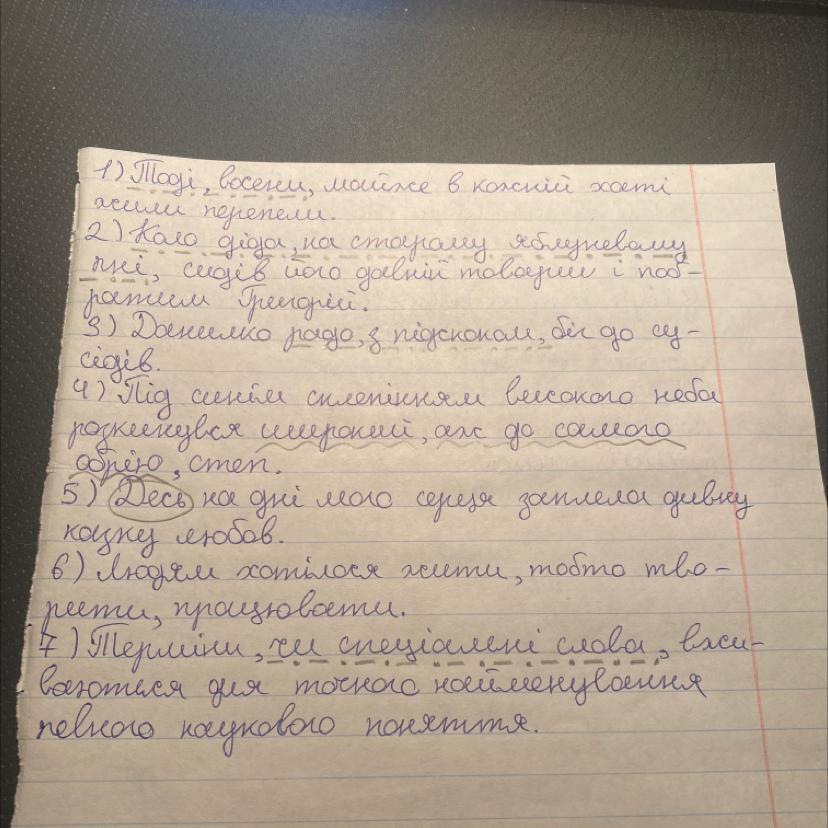 1) Тоді, восени, майже в кожній хаті
жили перепели.
2) Коло діда, на старому яблуневому
пні, сидів його давній товариш і поб-
ратим Григорій.
3) Данилко радо, з підскоком, біг до су-
сідів.
4) Під синім склепінням високого неба
розкинувся широкий, аж до самого
обрію, степ.
5) Десь на дні мого серця заплела дивну
казку любов.
6) Людям хотілося жити, тобто тво-
рити, працювати.
7) Терміни, чи спеціальні слова, вжи-
ваються для точного найменування
певного наукового поняття.